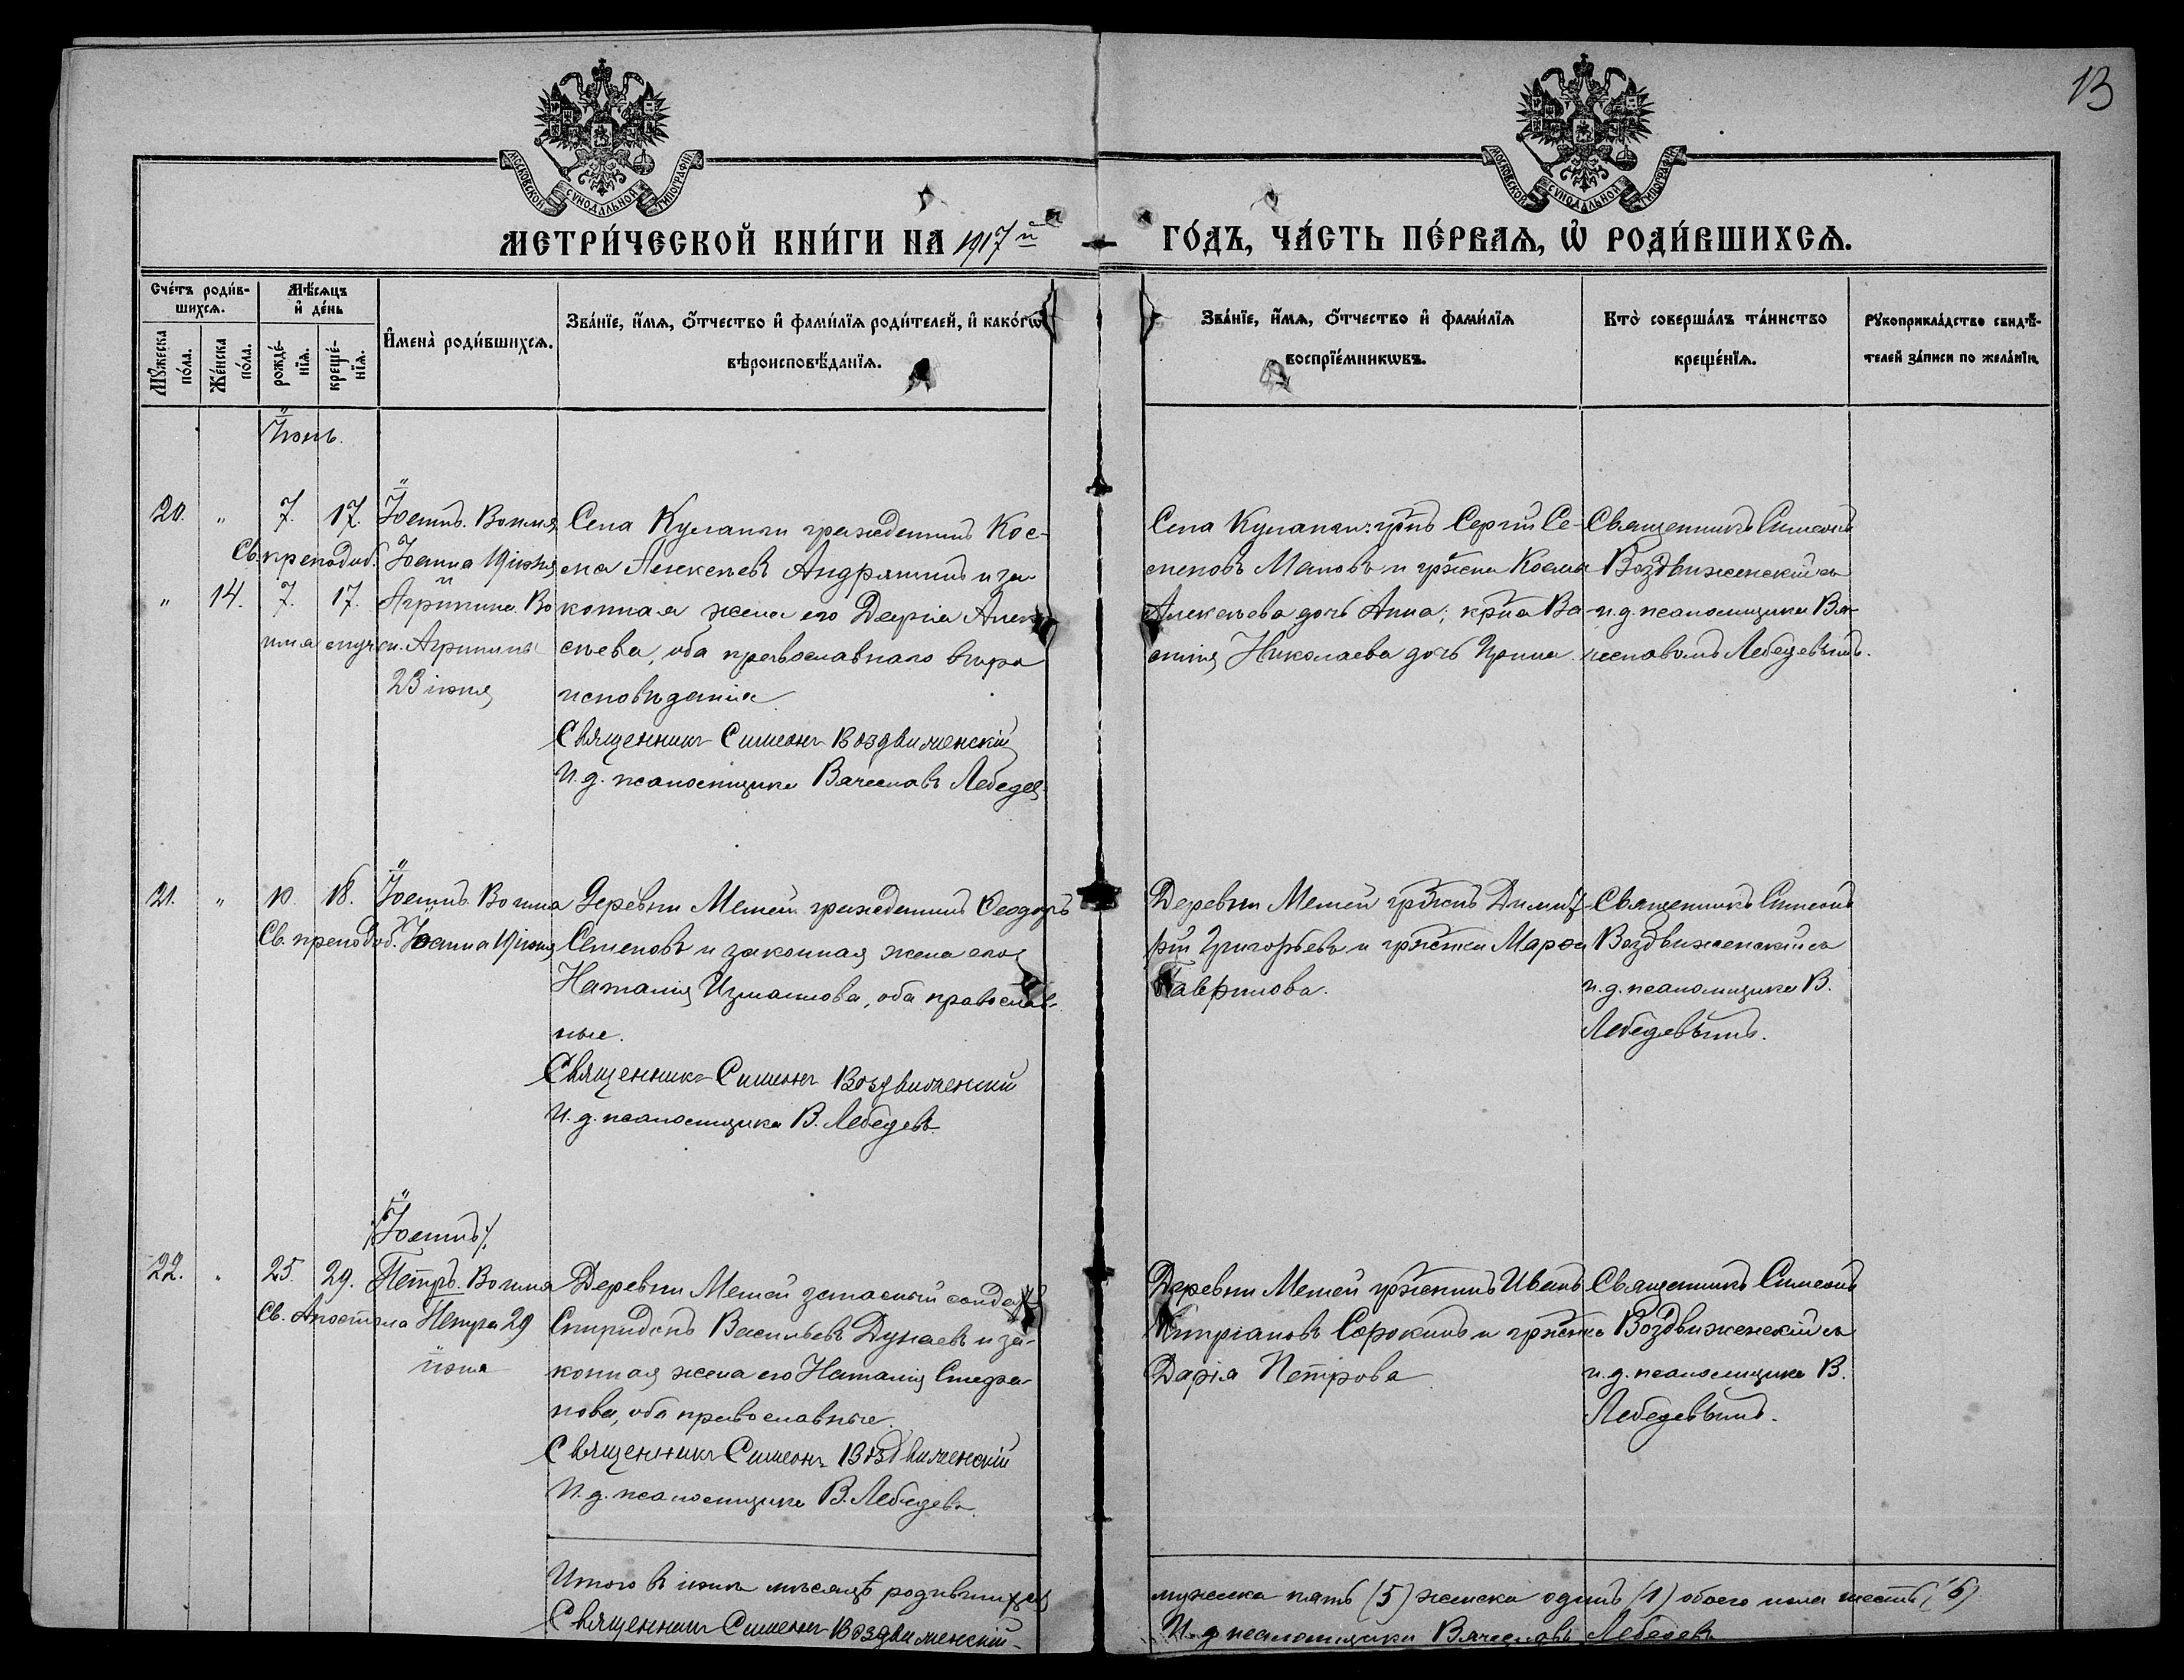 13
МОСКОВСКОЙ СѴНОДАЛЬНОЙ ТИПОГРАФІИ
МОСКОВСКОЙ СѴНОДАЛЬНОЙ ТИПОГРАФІИ
МЕТРИ́ЧЕСКОЙ КНИ́ГИ НА 1917 й ГО́ДЪ, ЧА́СТЬ ПЕ́РВАѦ, Ѡ҆ РОДИ́ВШИХСѦ.
Сче́тъ роди́в-
шихсѧ.
Мꙋ́жеска по́ла.
Же́нска по́ла.
Мѣ́сѧцъ и҆ де́нь
рожде́-нїѧ.
креще́-нїѧ.
И҆мена̀ роди́вшихсѧ.
Зва́нїе, и҆́мѧ, ѻ҆́тчество и҆ фами́лїѧ роди́телей, и҆ како́гѡ
вѣроисповѣ́данїѧ.
Зва́нїе, и҆́мѧ, ѻ҆́тчество и҆ фами́лїѧ
воспрїе́мникѡвъ.
Кто̀ соверша́лъ та́инство
креще́нїѧ.
Рꙋкоприкла́дство свидѣ́-
телей за́писи по жела́нїю.
Іюнь.
20. " 7. 17. Іоаннъ. Во имя
Св. преподоб. Іоанна 19 іюня
" 14. 7. 17. Агрипина. Во
имя муч-ц. Агрипины
23 іюня
Села гражданинъ Кос-
ма Алексѣевъ Андряшинъ и за-
конная жена его Дарія Алек-
сѣева, оба православнаго вѣро
исповѣданія.
Священникъ Симеонъ Воздвиженскій
И. д. псаломщика Вячеславъ Лебедев
Села Сергій Се-
меновъ Мановъ и Косма
Алексѣева дочь Анна; Ва-
силія Николаева дочь Ирина.
Священникъ Симеонъ
Воздвиженскій съ
и. д. псаломщика Вя-
чеславомъ Лебедевымъ.
21. " 10. 18. Іоаннъ. Во имя
Св. преподоб. Іоанна 19 іюня
Деревни Мешей гражданинъ Ѳеодоръ
Семеновъ и законная жена его
Наталія Измаилова, оба православ-
ные.
Священникъ Симеонъ Воздвиженскій
И. д. псаломщика В. Лебедевъ.
Деревни Мешей Димит-
рій Григорьевъ и Марѳа
Гаврилова.
Священникъ Симеонъ
Воздвиженскій съ
и. д. псаломщика В.
Лебедевымъ.
/Іоаннъ/.
22. " 25. 29. Петръ. Во имя
Св. Апостола Петра 29
іюня
Деревни Мешей запасный солдатъ
Спиридонъ Васильевъ Дунаевъ и за-
конная жена его Наталія Стефа-
нова, оба православные.
Священникъ Симеонъ Воздвиженскій
И. д. псаломщика В. Лебедевъ.
Деревни Мешей Иванъ
Кипріановъ Сорокинъ и
Дарія Петрова
Священникъ Симеонъ
Воздвиженскій съ
и. д. псаломщика В.
Лебедевымъ.
Итого въ іюнѣ мѣсяцѣ родившихся
мужеска пять (5) женска одинъ (1) обоего пола шесть (6)
Священникъ Симеонъ Воздвиженскій
И. д. псаломщика Вячеславъ Лебедевъ